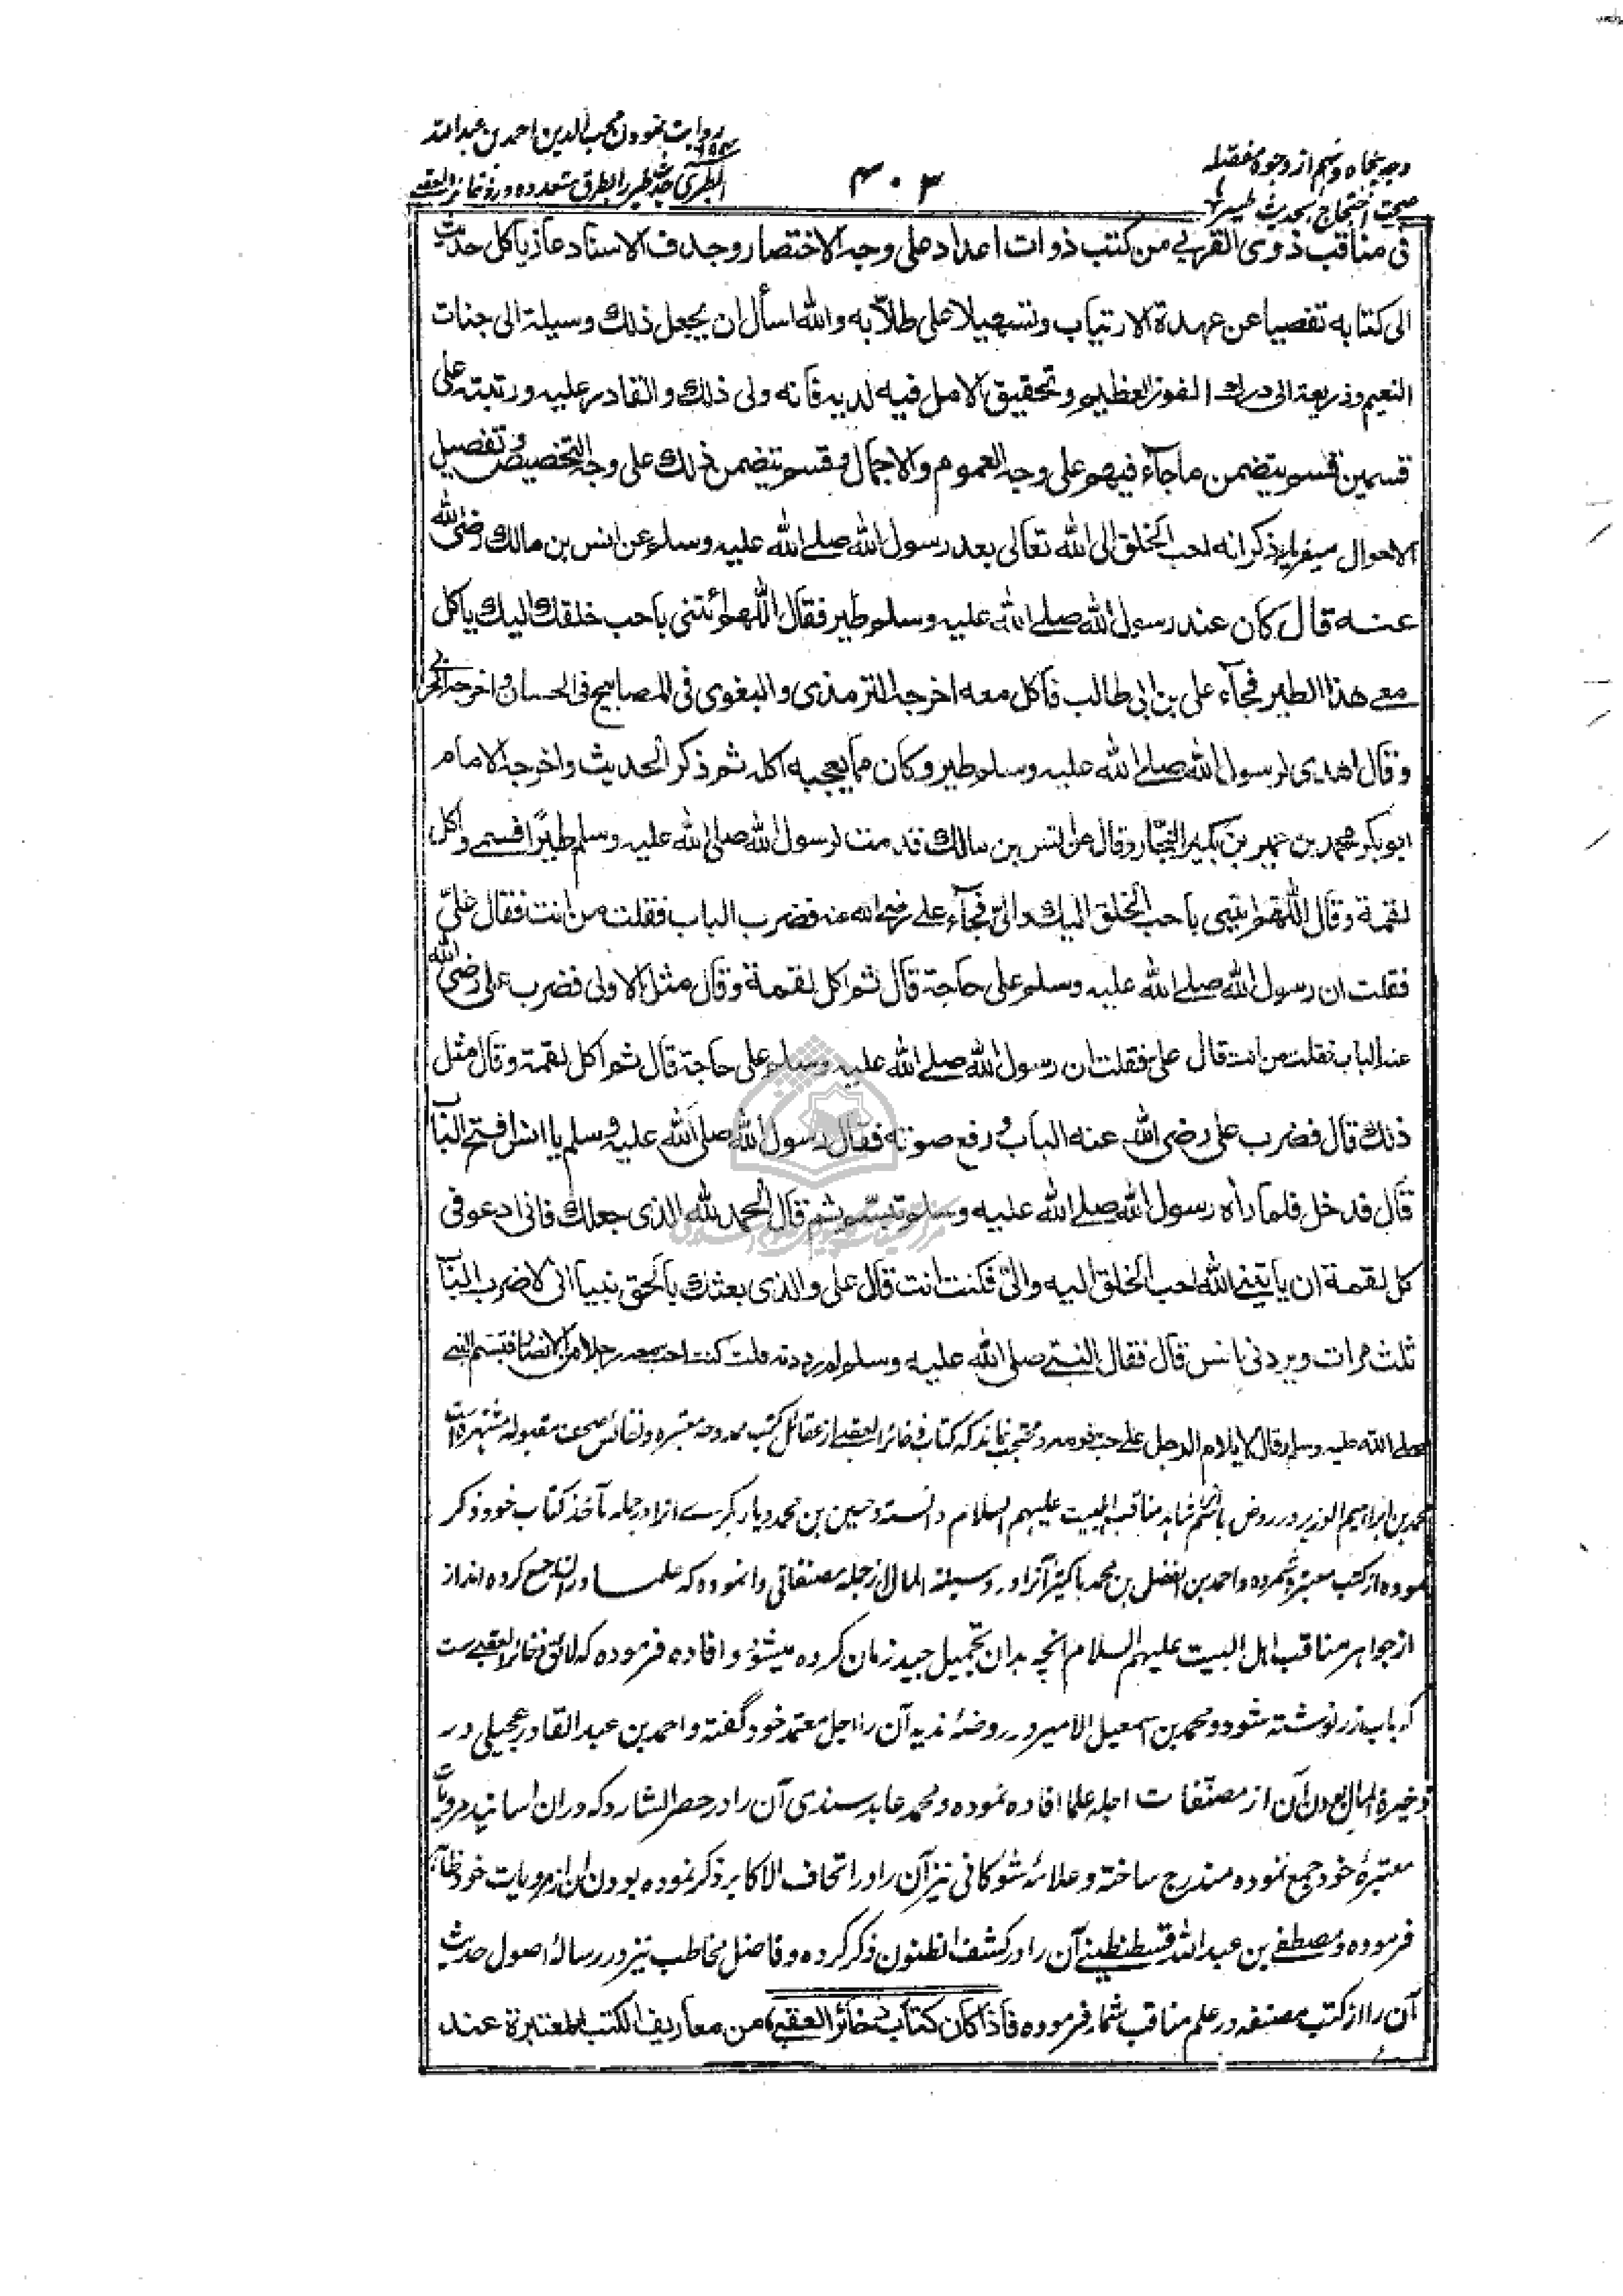 وجه پنجاه و نهم از وجوه مفصله
صحت احتجاج بحدیث طیر
۴۰۳
روایت نمودن محب الدین احمد بن عبدالله
الطبری حدیث طیر را بطرق متعدده در ذخائر العقبی
فی مناقب ذوی القربی من کتب ذوات اعداد علی وجه الاختصار وحذف الاسناد عازیا کل حدیث
الی کتابه تفصیا عن عهدة الارتیاب وتسهیلا علی طلابه والله اسأل ان یجعل ذلك وسیلة الی جنات
النعیم وذریعة الی درك الفوز العظیم وتحقیق الامل فیه لدیه فانه ولی ذلك والقادر علیه ورتبته علی
قسمین قسم یتضمن ما جآء فیهم علی وجه العموم والاجمال وقسم یتضمن ذلك علی وجه التخصیص وتفصیل
الاحوال ذکر انه احب الخلق الی الله تعالی بعد رسول الله صلے الله علیه وسلم عن انس بن مالك رضی الله
عنه قال کان عند رسول الله صلے الله علیه وسلم طیر فقال اللهم ائتنی باحب خلقك الیك یاکل
معے هذا الطیر فجآء علی بن ابی طالب فاکل معه اخرجه الترمذی والبغوی فی المصابیح فی الحسان واخرجه الحربی
وقال اهدی لرسول الله صلے الله علیه وسلم طیر وکان مما یعجبه اکله ثم ذکر الحدیث واخرجه الامام
ابو بکر محمد بن عمیر بن بکیر النجار وقال عن انس بن مالك قدمت لرسول الله صلی الله علیه وسلم طیرًا فسمی واکل
لقمة وقال اللهم ایتنی باحب الخلق الیك والیّ فجآء علے رضی الله عنه فضرب الباب فقلت من انت فقال علیّ
فقلت ان رسول الله صلے الله علیه وسلم علی حاجة قال ثم اکل لقمة وقال مثل الاولی فضرب علی رضی الله
عنه الباب فقلت من انت قال علی فقلت ان رسول الله صلے الله علیه وسلم علی حاجة قال ثم اکل لقمة وقال مثل
ذلك قال فضرب علی رضی الله عنه الباب ورفع صوته فقال رسول الله صلی الله علیه وسلم یا انس افتح الباب
قال فدخل فلما رأه رسول الله صلے الله علیه وسلم تبسم ثم قال الحمد لله الذی جعلك فانی ادعو فی
کل لقمة ان یاتینے الله احب الخلق الیه والیّ فکنت انت قال علی والذی بعثك بالحق نبیا انی لاضرب الباب
ثلث مرات ویردنی انس قال فقال النبے صلی الله علیه وسلم لم رددته قلت کنت احب معه رجلا من الانصار فتبسم النبے
صلے الله علیه وسلم وقال لا یلام الرجل علے حب قومه و محتجب نماند که کتاب ذخائر العقبے از عقائل کتب ممدوحه معتبره و نفائس صحف مقبوله مشتهره است
محمد بن ابراهیم الوزیر در روض باسم شاهد مناقب اهلبیت علیهم السلام دانسته و حسین بن محمد دیاربکرے آنرا در جمله مآخذ کتاب خود ذکر
نموده از کتب معتبره شمرده و احمد بن الفضل بن محمد باکثیر آنرا در وسیلة المآل از جمله مصنفاتی وانموده که علما در ان جمع کرده اند از
از جواهر مناقب اهل البیت علیهم السلام انچه بدان تجمیل جید زمان کرده میشود و افاده فرموده که لائق ذخائر العقبے ست
که بآب زر نوشته شود و محمد بن اسمعیل الامیر در روضهٔ ندیه آن را اجل معتمد خود گفته و احمد بن عبد القادر عجیلی در
ذخیرة المآل بودن آن از مصنفات اجلهٔ علما افاده نموده و محمد عابد سندی آن را در حصر الشارد که در ان اسانید مرویات
معتبرهٔ خود جمع نموده مندرج ساخته و علامهٔ شوکانی نیز آن را در اتحاف الاکابر ذکر نموده بودن آن از مرویات خود ظاهر
فرموده و مصطفے بن عبد الله قسطنطینے آن را در کشف الظنون ذکر کرده و فاضل مخاطب نیز در رسالهٔ اصول حدیث
آن را از کتب مصنفه در علم مناقب شمار فرموده فاذا کان کتاب ذخائر العقبے من معاریف الکتب المعتبرة عند